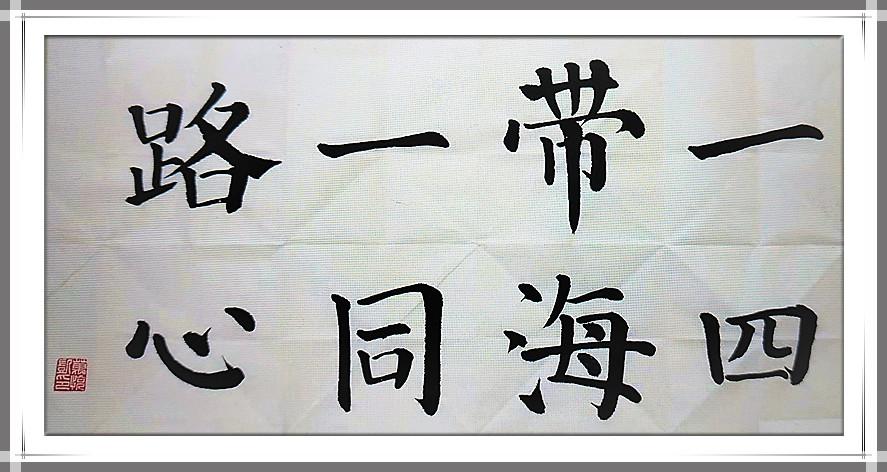 一带一路
四海同心